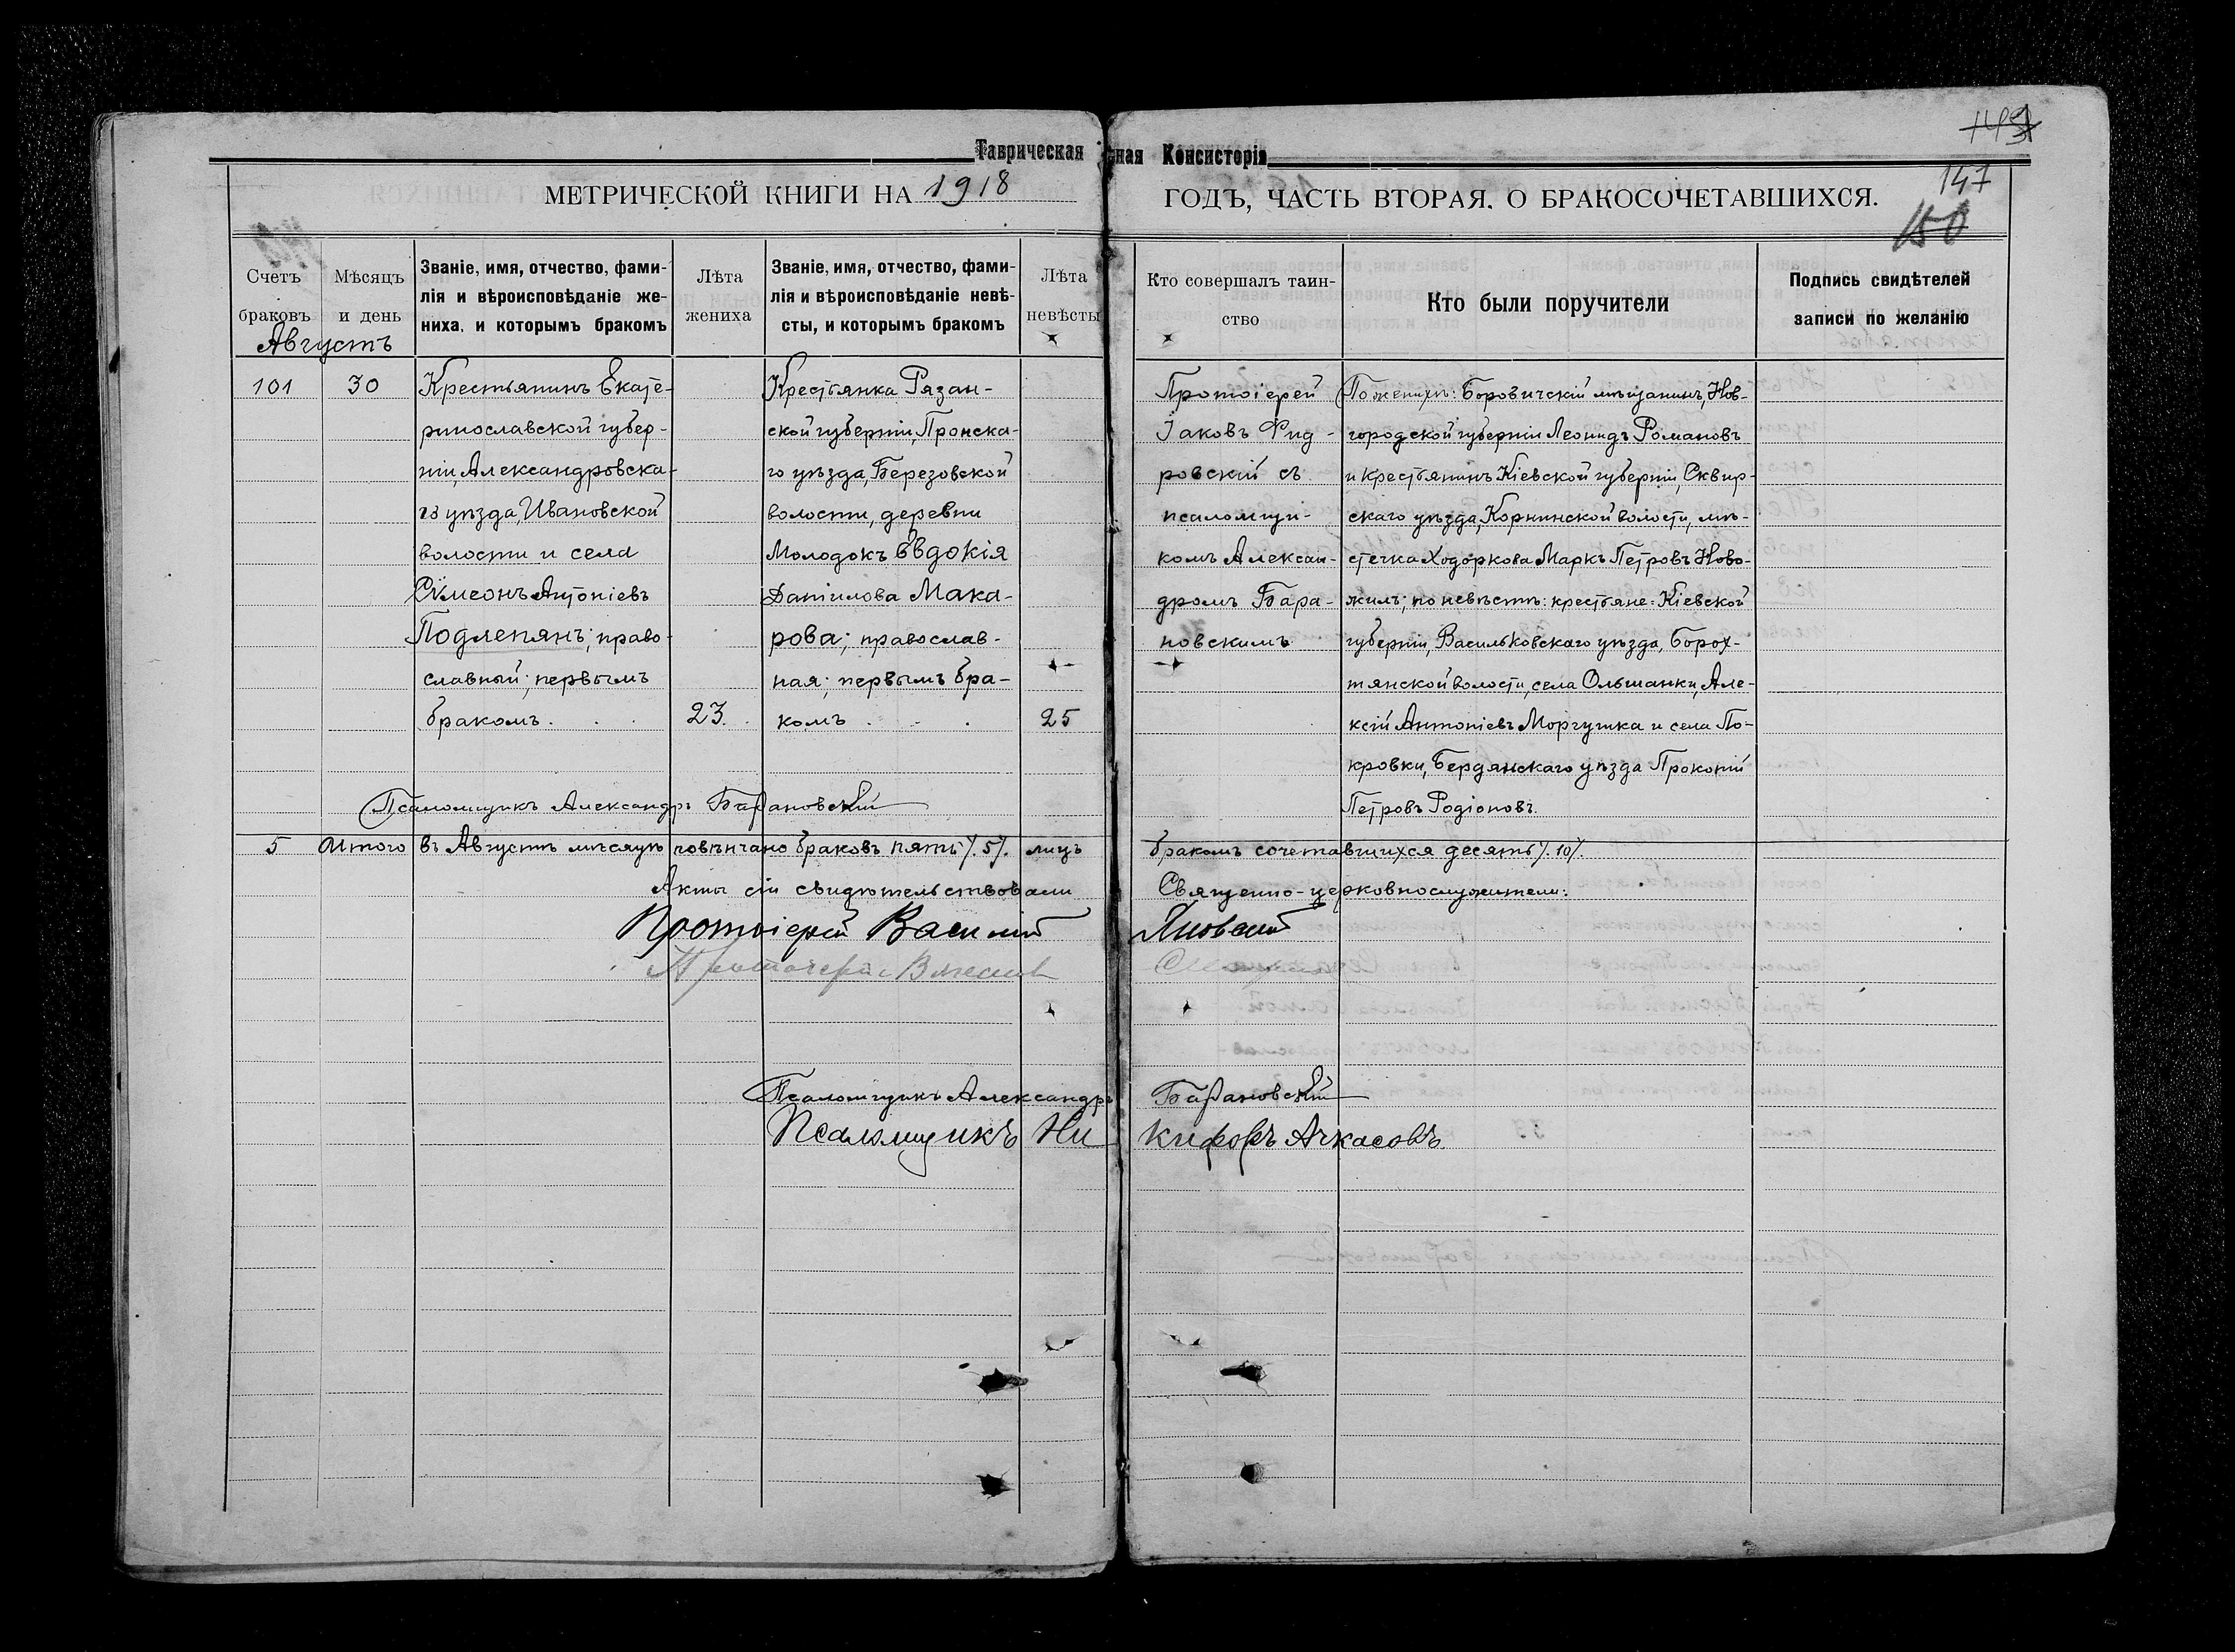 Таврическая ная Консисторія
149
147
150
МЕТРИЧЕСКОЙ КНИГИ НА 1918 ГОДЪ, ЧАСТЬ ВТОРАЯ, О БРАКОСОЧЕТАВШИХСЯ.
Счетъ браковъ
Мѣсяцъ и день
Званіе, имя, отчество, фами-
лія и вѣроисповѣданіе же-
ниха, и которымъ бракомъ
Лѣта жениха
Званіе, имя, отчество, фами-
лія и вѣроисповѣданіе невѣ-
сты, и которымъ бракомъ
Лѣта невѣсты
Кто совершалъ таин-
ство
Кто были поручители
Подпись свидѣтелей
записи по желанію
Августъ
101
30
Крестьянинъ Екате-
ринославской губер-
ніи, Александровска-
го уѣзда, Ивановской
волости и села
Симеонъ Антоніевъ
Подлепянъ; право-
славный; первымъ
бракомъ.
23.
Крестьянка Рязан-
ской губерніи, Пронска-
го уѣзда, Березовской
волости, деревни
Молодокъ Евдокія
Даніилова Мака-
рова; православ-
ная; первымъ бра-
комъ
25
Протоіерей
Іаковъ Фид-
ровскій съ
псаломщи-
комъ Алексан-
дромъ Бара-
новскимъ
По женихѣ: Боровичскій мѣщанинъ, Нов-
городской губерніи Леонидъ Романовъ
и крестьянинъ Кіевской губерніи, Сквир-
скаго уѣзда, Корнинской волости, мѣ-
стечка Ходоркова Маркъ Петровъ Ново-
жилъ; по невѣстѣ: крестьяне: Кіевской
губерніи, Васильковскаго уѣзда, Борох-
тянской волости, села Ольшанки, Але-
ксій Антоніевъ Моргушка и села По-
кровки, Бердянскаго уѣзда Прокопій
Петровъ Родіоновъ.
Псаломщикъ Александръ Барановскій
5 Итого въ Августѣ мѣсяцѣ повѣнчано браковъ пять /.5/. лицъ бракомъ сочетавшихся десять /.10/.
Акты сіи свидѣтельствовали Священно-церковнослужители:
Протоіерей Василій Яновскій
Протоіерей
Псаломщикъ Александръ Барановскій
Псаломщикъ Никифоръ Ачкасовъ.